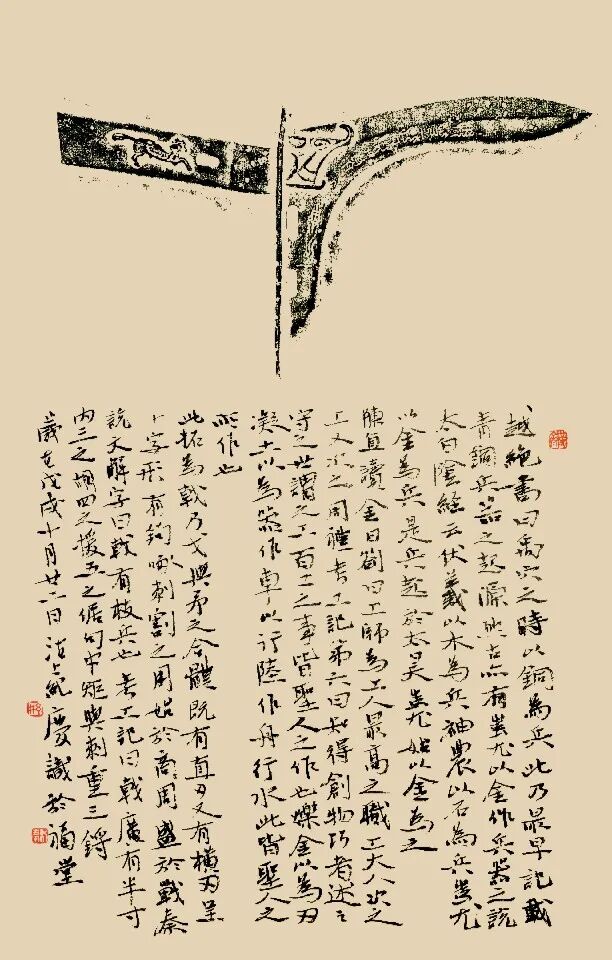 越絕書曰禹穴之時以銅為兵此乃最早記載
青銅兵器之起源地古亦有蚩尤以金作兵器之說
太白陰經云伏羲以木為兵神農以石為兵蚩尤
以金為兵是兵起於太昊蚩尤始以金為之
陳直讀金日劄曰工師為工人最高之職工大人次之
工又次之周禮考工記第六曰知得創物巧者述之
守之世謂之工百工之事皆聖人之作也爍金以為刃
凝土以為器作車以行陸作舟行水此皆聖人之
所作也
此拓為戟乃戈與矛之合體既有直刃又有橫刃呈
十字形有鉤啄刺割之用始於商周盛於戰秦
說文解字曰戟有枝兵也考工記曰戟廣有半寸
內三之胡四之援五之倨句中矩與刺重三鋝
歲在戊戌十月廿二日 慶識於 堂